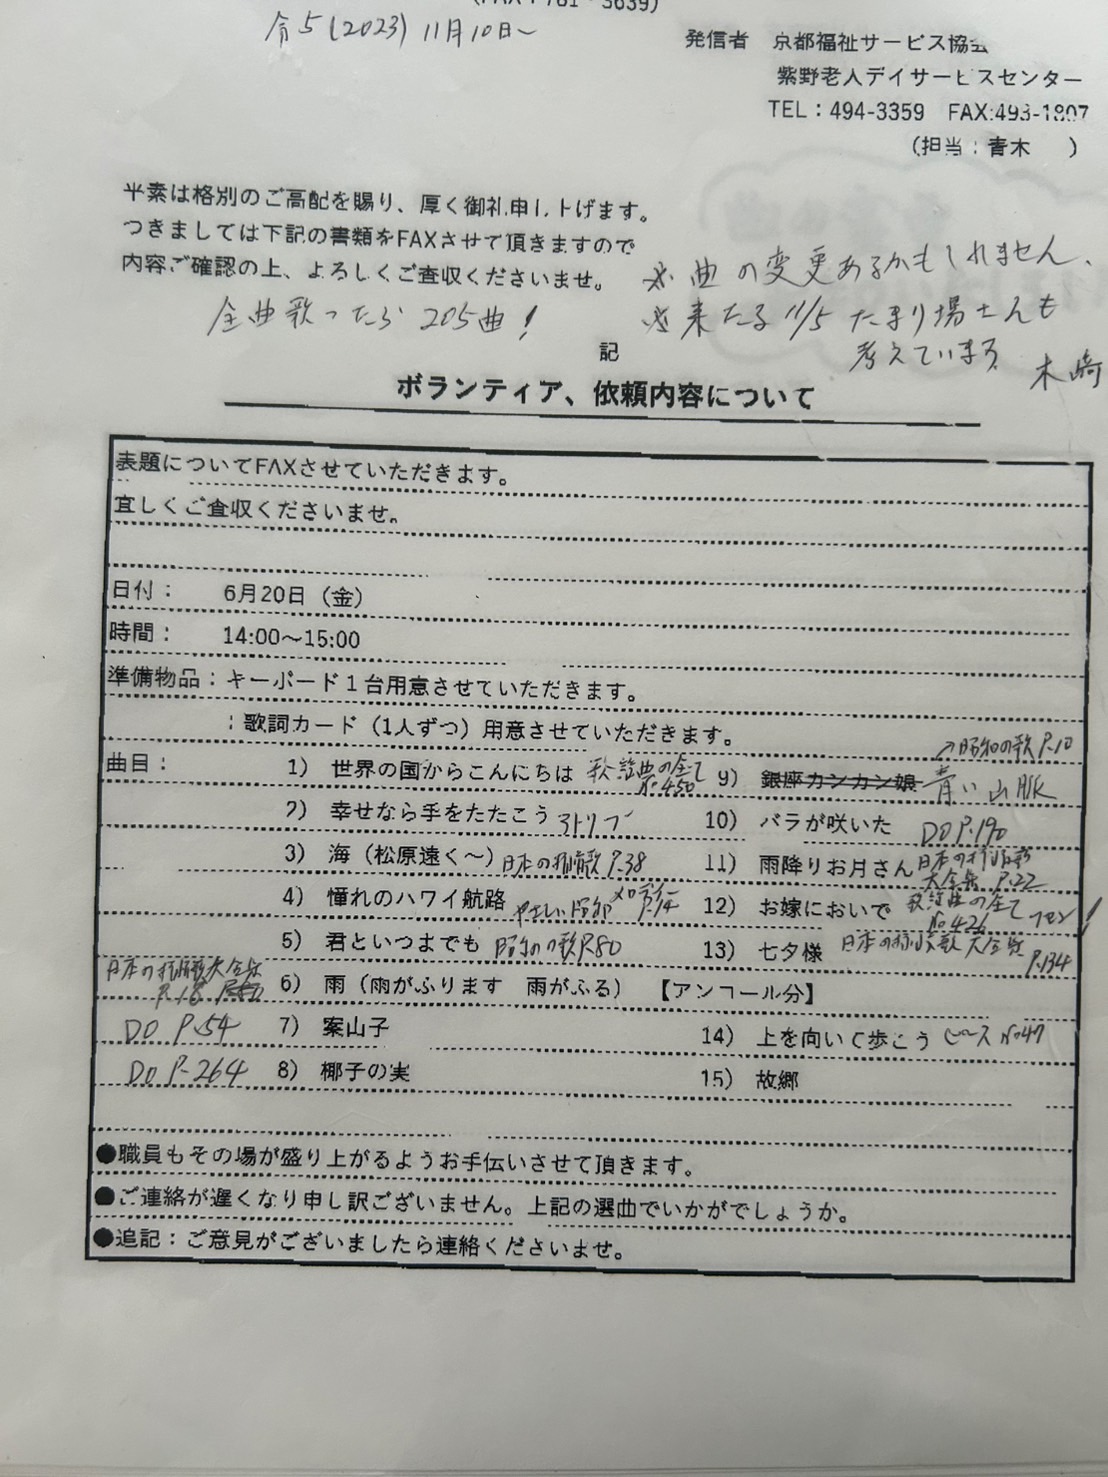 令5(2023) 11月10日〜
発信者 京都福祉サービス協会
紫野老人デイサービスセンター
TEL：494-3359 FAX:493-1807
(担当：青木 )
平素は格別のご高配を賜り、厚く御礼申し上げます。
つきましては下記の書類をFAXさせて頂きますので
内容ご確認の上、よろしくご査収くださいませ。
※曲の変更あるかもしれません、
全曲歌ったら205曲！
※来たる11/5 たまり場さんも
考えています。
木崎
記
ボランティア、依頼内容について
表題についてFAXさせていただきます。
宜しくご査収くださいませ。
日付： 6月20日（金）
時間： 14:00〜15:00
準備物品：キーボード１台用意させていただきます。
：歌詞カード（1人ずつ）用意させていただきます。
→昭和の歌 P.10
曲目： 1） 世界の国からこんにちは 歌謡曲の全て No.450
9） 銀座カンカン娘 青い山脈
2） 幸せなら手をたたこう
10） バラが咲いた DO P.190
3） 海（松原遠く〜）日本の抒情歌 P.38
11） 雨降りお月さん 日本の抒情歌大全集 P.22
4） 憧れのハワイ航路 やさしい メロディー P.14
12） お嫁においで 歌謡曲の全て No.426
5） 君といつまでも 昭和の歌P.80
13） 七夕様 日本の抒情歌大全集 P.134
日本の抒情歌大全集
6） 雨（雨がふります 雨がふる） 【アンコール分】
DO P.54 7） 案山子
14） 上を向いて歩こう ピース No.47
DO P-264 8） 椰子の実
15） 故郷
●職員もその場が盛り上がるようお手伝いさせて頂きます。
●ご連絡が遅くなり申し訳ございません。上記の選曲でいかがでしょうか。
●追記：ご意見がございましたら連絡くださいませ。